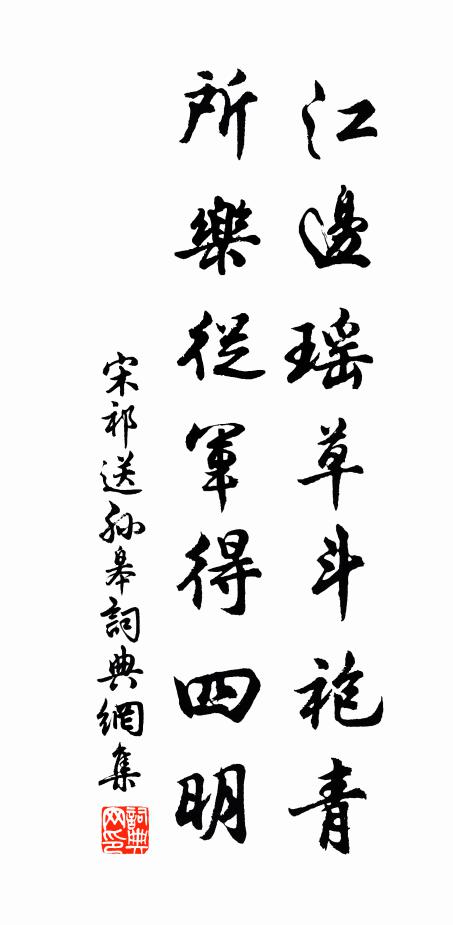 江邊瑶草斗袍青
所樂從軍得四明
宋祁送孫皋詞典網集
詞典网印